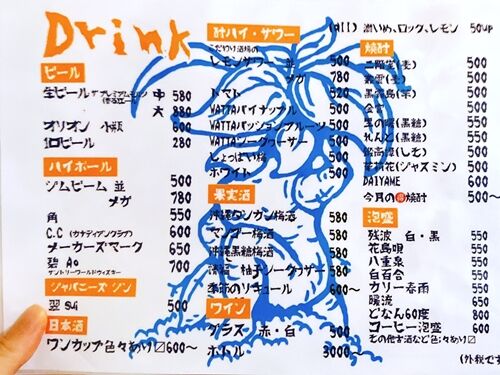 Drink
ビール
生ビール 中 580
大 880
オリオン 小瓶 600
280
ハイボール
ジムビーム 並 500
メガ 780
角 550
C.C (カナディアンクラブ) 600
メーカーズマーク 650
碧 Ao 700
サントリーワールドウィスキー
ジャパニーズ ジン
翠 Sui 500
日本酒
ワンカップ色々あり〼 600〜
酎ハイ・サワー
こだわり酒場の
レモンサワー 並 500
メガ 780
トマト 520
WATTAパイナップル 500
WATTAパッションフルーツ 500
WATTAシークヮーサー 500
とよっぱい梅 500
ホワイト 500
果実酒
沖縄タンカン梅酒 580
マンゴー梅酒 580
沖縄黒糖梅酒 580
柚子シークヮサー 580
季節のリキュール 600〜
ワイン
グラス 赤・白 500
ボトル 3000〜
(All) 濃いめ、ロック、レモン 50up
焼酎
二階堂(麦) 500
(麦) 500
黒霧島(芋) 500
500
500
れんと(黒糖) 500
500
茉莉花(ジャスミン) 500
DAIYAME 600
今月の 焼酎 500〜
泡盛
残波 白・黒 550
花島唄 550
八重泉 550
白百合 550
カリー春雨 550
暖流 650
どなん60度 800
コーヒー泡盛 600
その他古酒など色々あり〼
(外税です